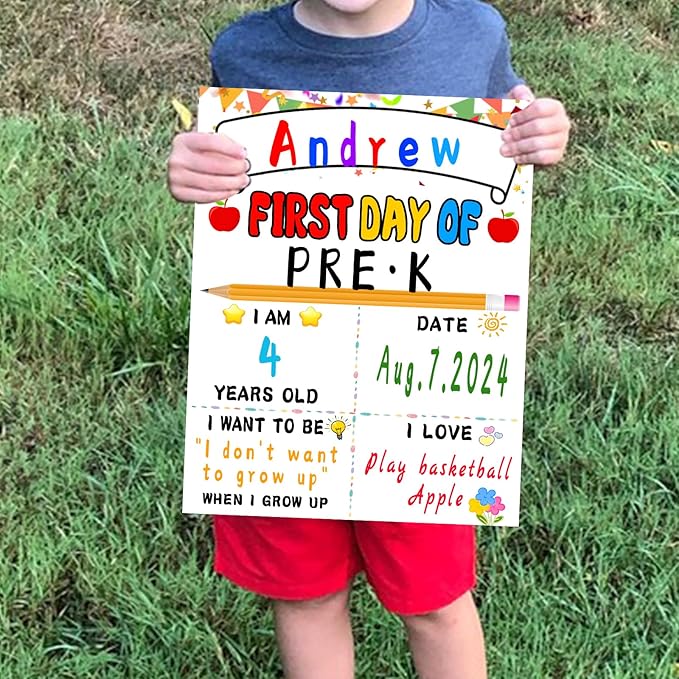 Andrew
FIRST DAY OF
PRE·K
I AM
4
YEARS OLD
DATE
Aug.7.2024
I WANT TO BE
"I don't want
to grow up"
WHEN I GROW UP
I LOVE
Play basketball
Apple